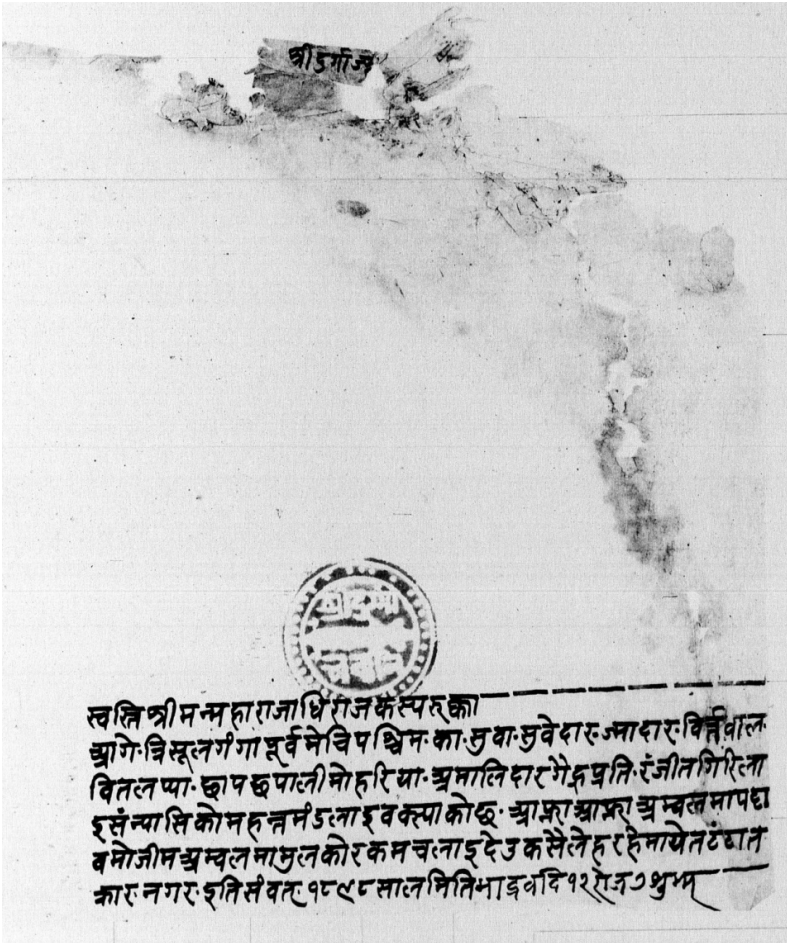 श्रीदुर्गाज्यू
श्रीदुर्गा
स्वस्तिश्रीमन्महाराजाधिराजकस्यरुक्का
आगे त्रिसूलगंगापूर्वमेचिपश्चिम का सुवा सुवेदार ज्मादार विर्तावाल
वितलप्या छापछपालीमोहरिया अमालिदारगैह्रप्रति रंजीतगिरिला
इसंन्यासिकोमहन्तमंडलाइवक्स्याकोछ आफ्ना आफ्ना अम्वलमा
वमोजीमअम्वलमामुलकोरकमचलाइदेउकसैलेहरहेमाये
कार नगर इतिसंवत् १८९८ सालमितिभाद्रवदि१२रोज७शुभम्